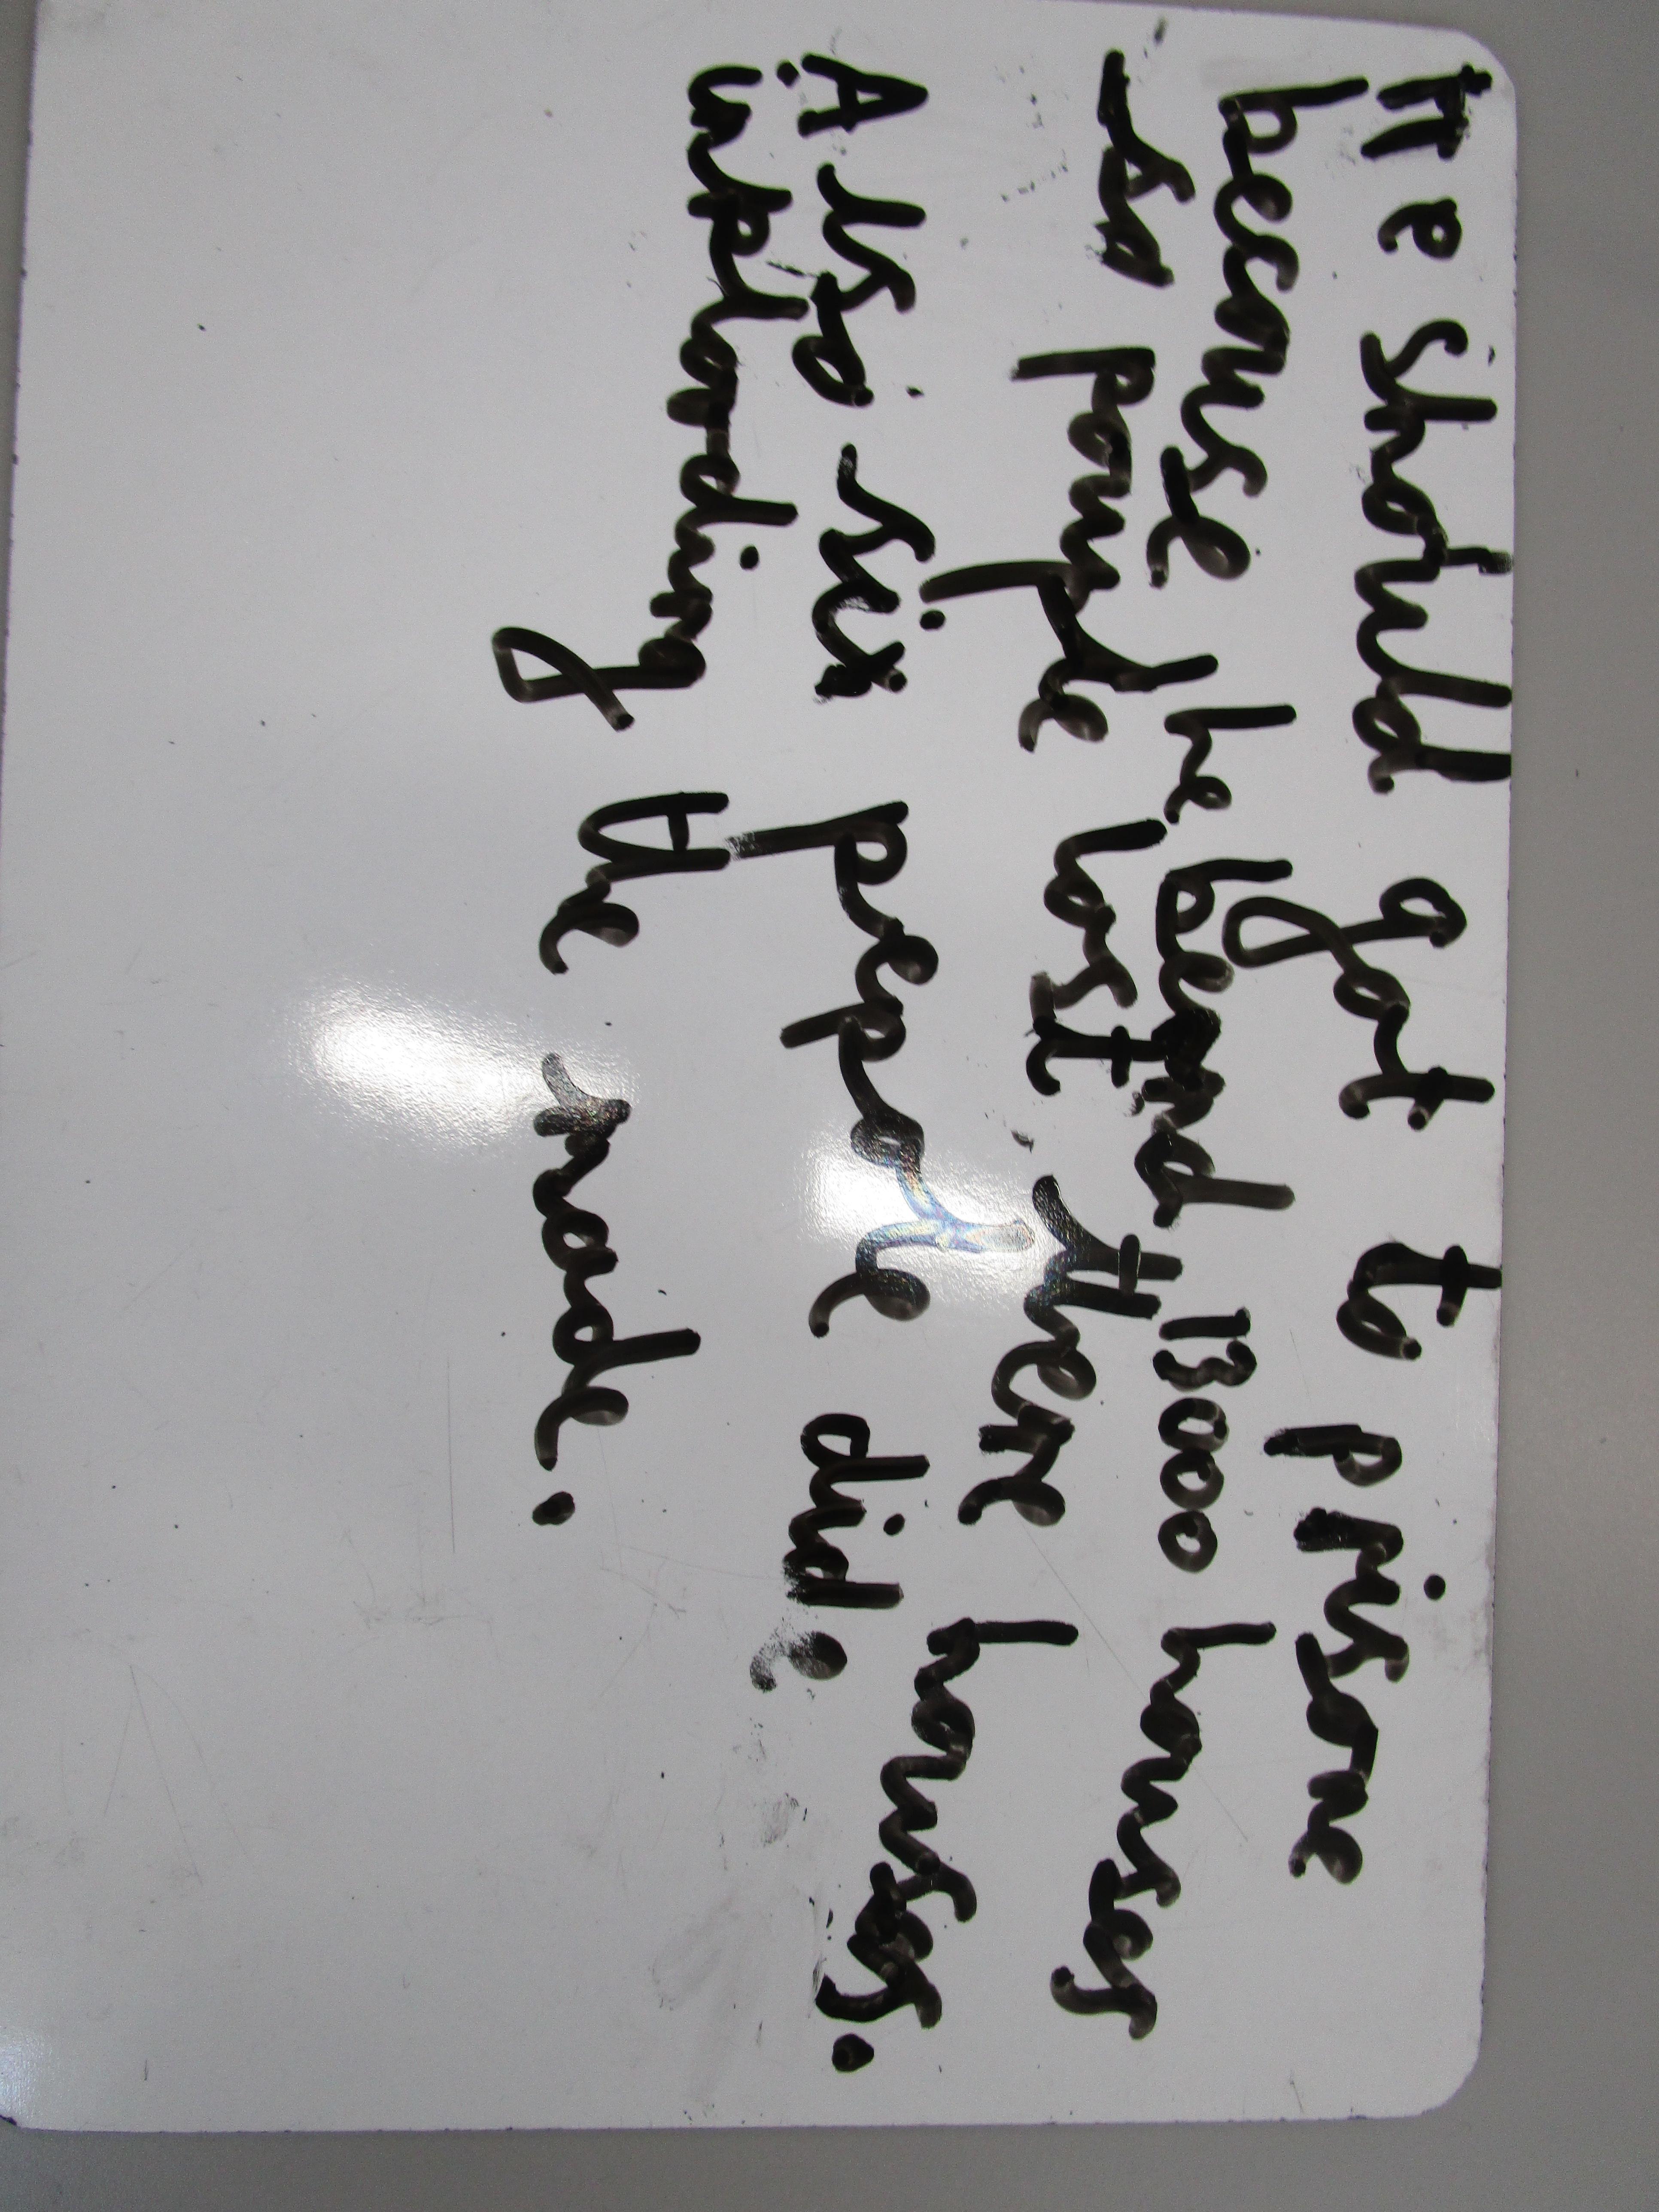 He should got to prisone
because he beurnd 13000 houses
so pouple lost there houses.
Also six pepole did.
inploarding the made.